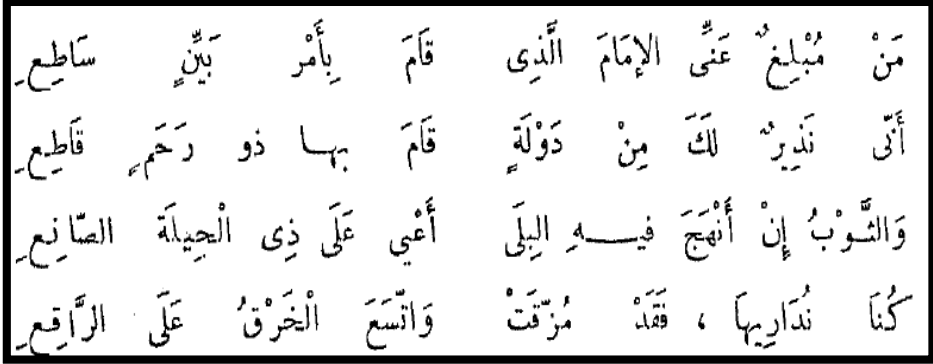 مَنْ مُبْلِغٌ عَنِّى الإمَامَ الَّذِى قَامَ بِأَمْر بَيِّنٍ سَاطِعِ
أَنّى نَذِيرٌ لَكَ مِنْ دَوْلَةٍ قَامَ بهـا ذو رَحَمٍ قَاطِعِ
وَالثَّوْبُ إِنْ أَنْهَجَ فيـــهِ البِلَى أَعْيى عَلَى ذِى الْحِيلَة الصّانِعِ
كُنَا نُدَارِيهَا ، فَقَدْ مُزّقَتْ وَاتّسَعَ الْخَرْقُ عَلَى الرَّاقِعِ